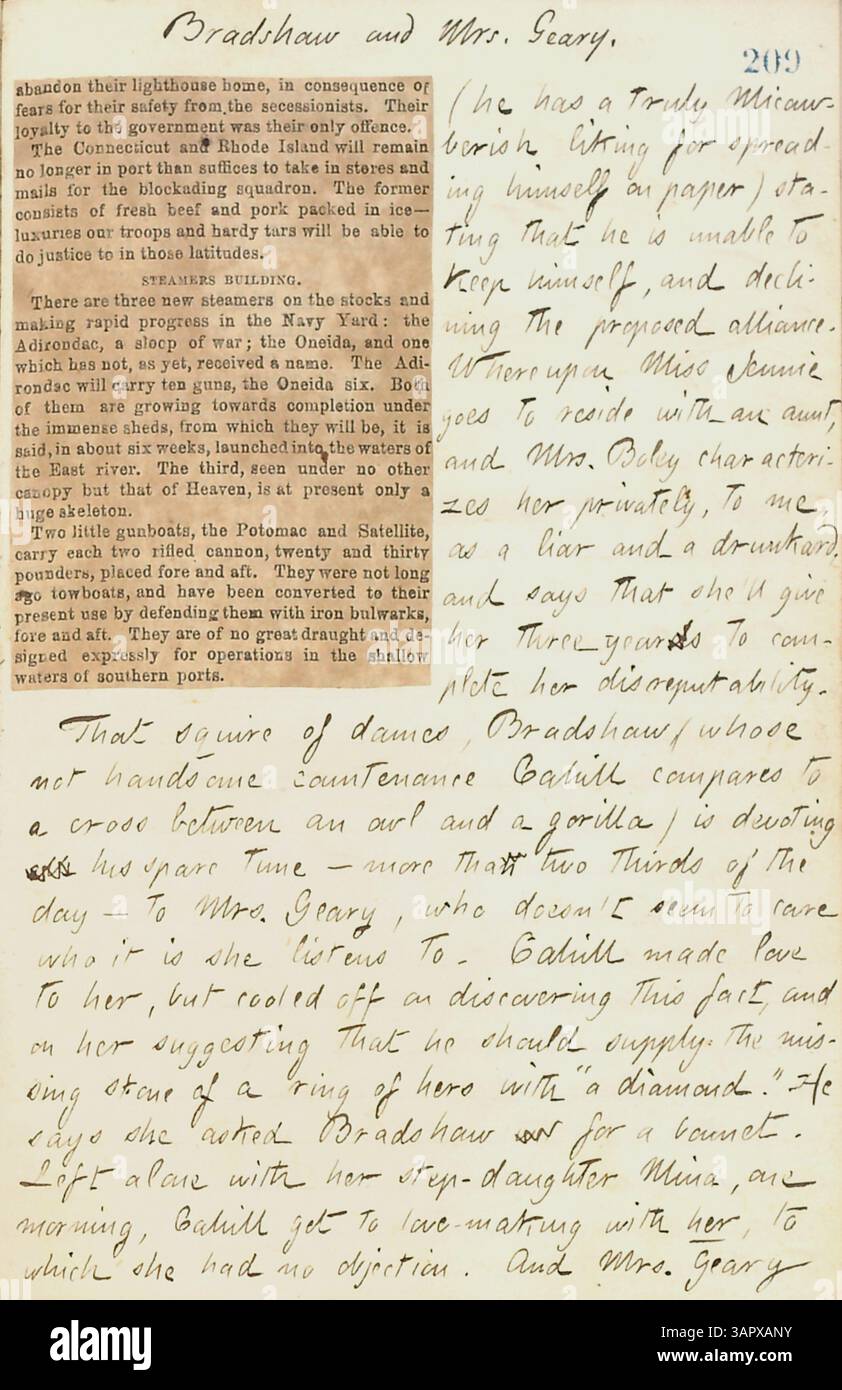 Bradshaw and Mrs. Geary.
209
abandon their lighthouse home, in consequence of
fears for their safety from the secessionists. Their
loyalty to the government was their only offence.
The Connecticut and Rhode Island will remain
no longer in port than suffices to take in stores and
mails for the blockading squadron. The former
consists of fresh beef and pork packed in ice—
luxuries our troops and hardy tars will be able to
do justice to in those latitudes.
STEAMERS BUILDING.
There are three new steamers on the stocks and
making rapid progress in the Navy Yard: the
Adirondac, a sloop of war; the Oneida, and one
which has not, as yet, received a name. The Adi-
rondac will carry ten guns, the Oneida six. Both
of them are growing towards completion under
the immense sheds, from which they will be, it is
said, in about six weeks, launched into the waters of
the East river. The third, seen under no other
canopy but that of Heaven, is at present only a
huge skeleton.
Two little gunboats, the Potomac and Satellite,
carry each two rifled cannon, twenty and thirty
pounders, placed fore and aft. They were not long
ago towboats, and have been converted to their
present use by defending them with iron bulwarks,
fore and aft. They are of no great draught and de-
signed expressly for operations in the shallow
waters of southern ports.
(he has a truly Micaw-
berish liking for spread-
ing himself on paper) sta-
ting that he is unable to
keep himself, and decli-
ning the proposed alliance.
Whereupon Miss Jennie
goes to reside with an aunt,
and Mrs. Boley characteri-
zes her privately, to me,
as a liar and a drunkard,
and says that she'll give
her three years to com-
plete her disreputability.
That squire of dames, Bradshaw (whose
not handsome countenance Cahill compares to
a cross between an owl and a gorilla) is devoting
his spare time — more than two thirds of the
day — to Mrs. Geary, who doesn't seem to care
who it is she listens to. Cahill made love
to her, but cooled off on discovering this fact, and
on her suggesting that he should supply the mis-
sing stone of a ring of hers with "a diamond." He
says she asked Bradshaw for a bonnet.
Left alone with her step-daughter Mina, one
morning, Cahill got to love-making with her, to
which she had no objection. And Mrs. Geary
alamy
Image ID: 3APXANY
www.alamy.com